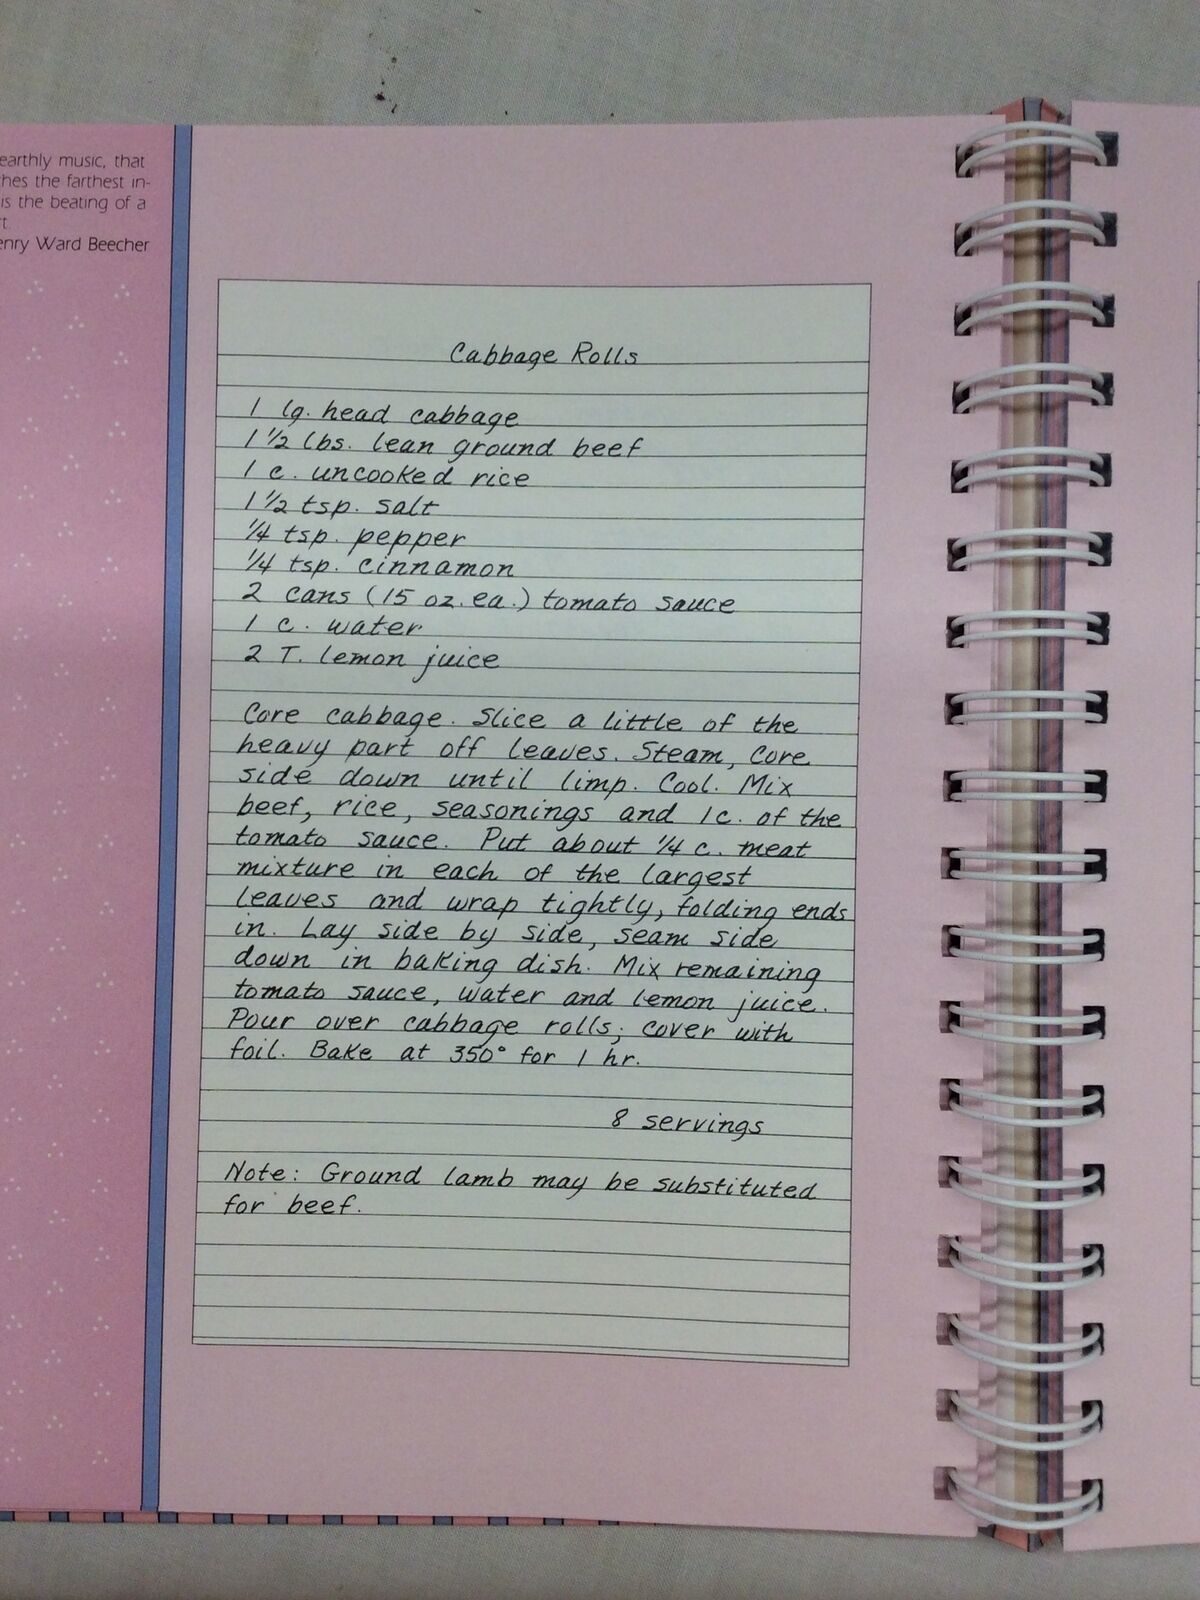 earthly music, that
ches the farthest in-
is the beating of a
rt.
enry Ward Beecher
Cabbage Rolls
1 lg. head cabbage
1 1/2 lbs. lean ground beef
1 c. uncooked rice
1 1/2 tsp. salt
1/4 tsp. pepper
1/4 tsp. cinnamon
2 cans (15 oz. ea.) tomato sauce
1 c. water
2 T. lemon juice
Core cabbage. Slice a little of the
heavy part off leaves. Steam, core
side down until limp. Cool. Mix
beef, rice, seasonings and 1 c. of the
tomato sauce. Put about 1/4 c. meat
mixture in each of the largest
leaves and wrap tightly, folding ends
in. Lay side by side, seam side
down in baking dish. Mix remaining
tomato sauce, water and lemon juice.
Pour over cabbage rolls; cover with
foil. Bake at 350° for 1 hr.
8 servings
Note: Ground lamb may be substituted
for beef.